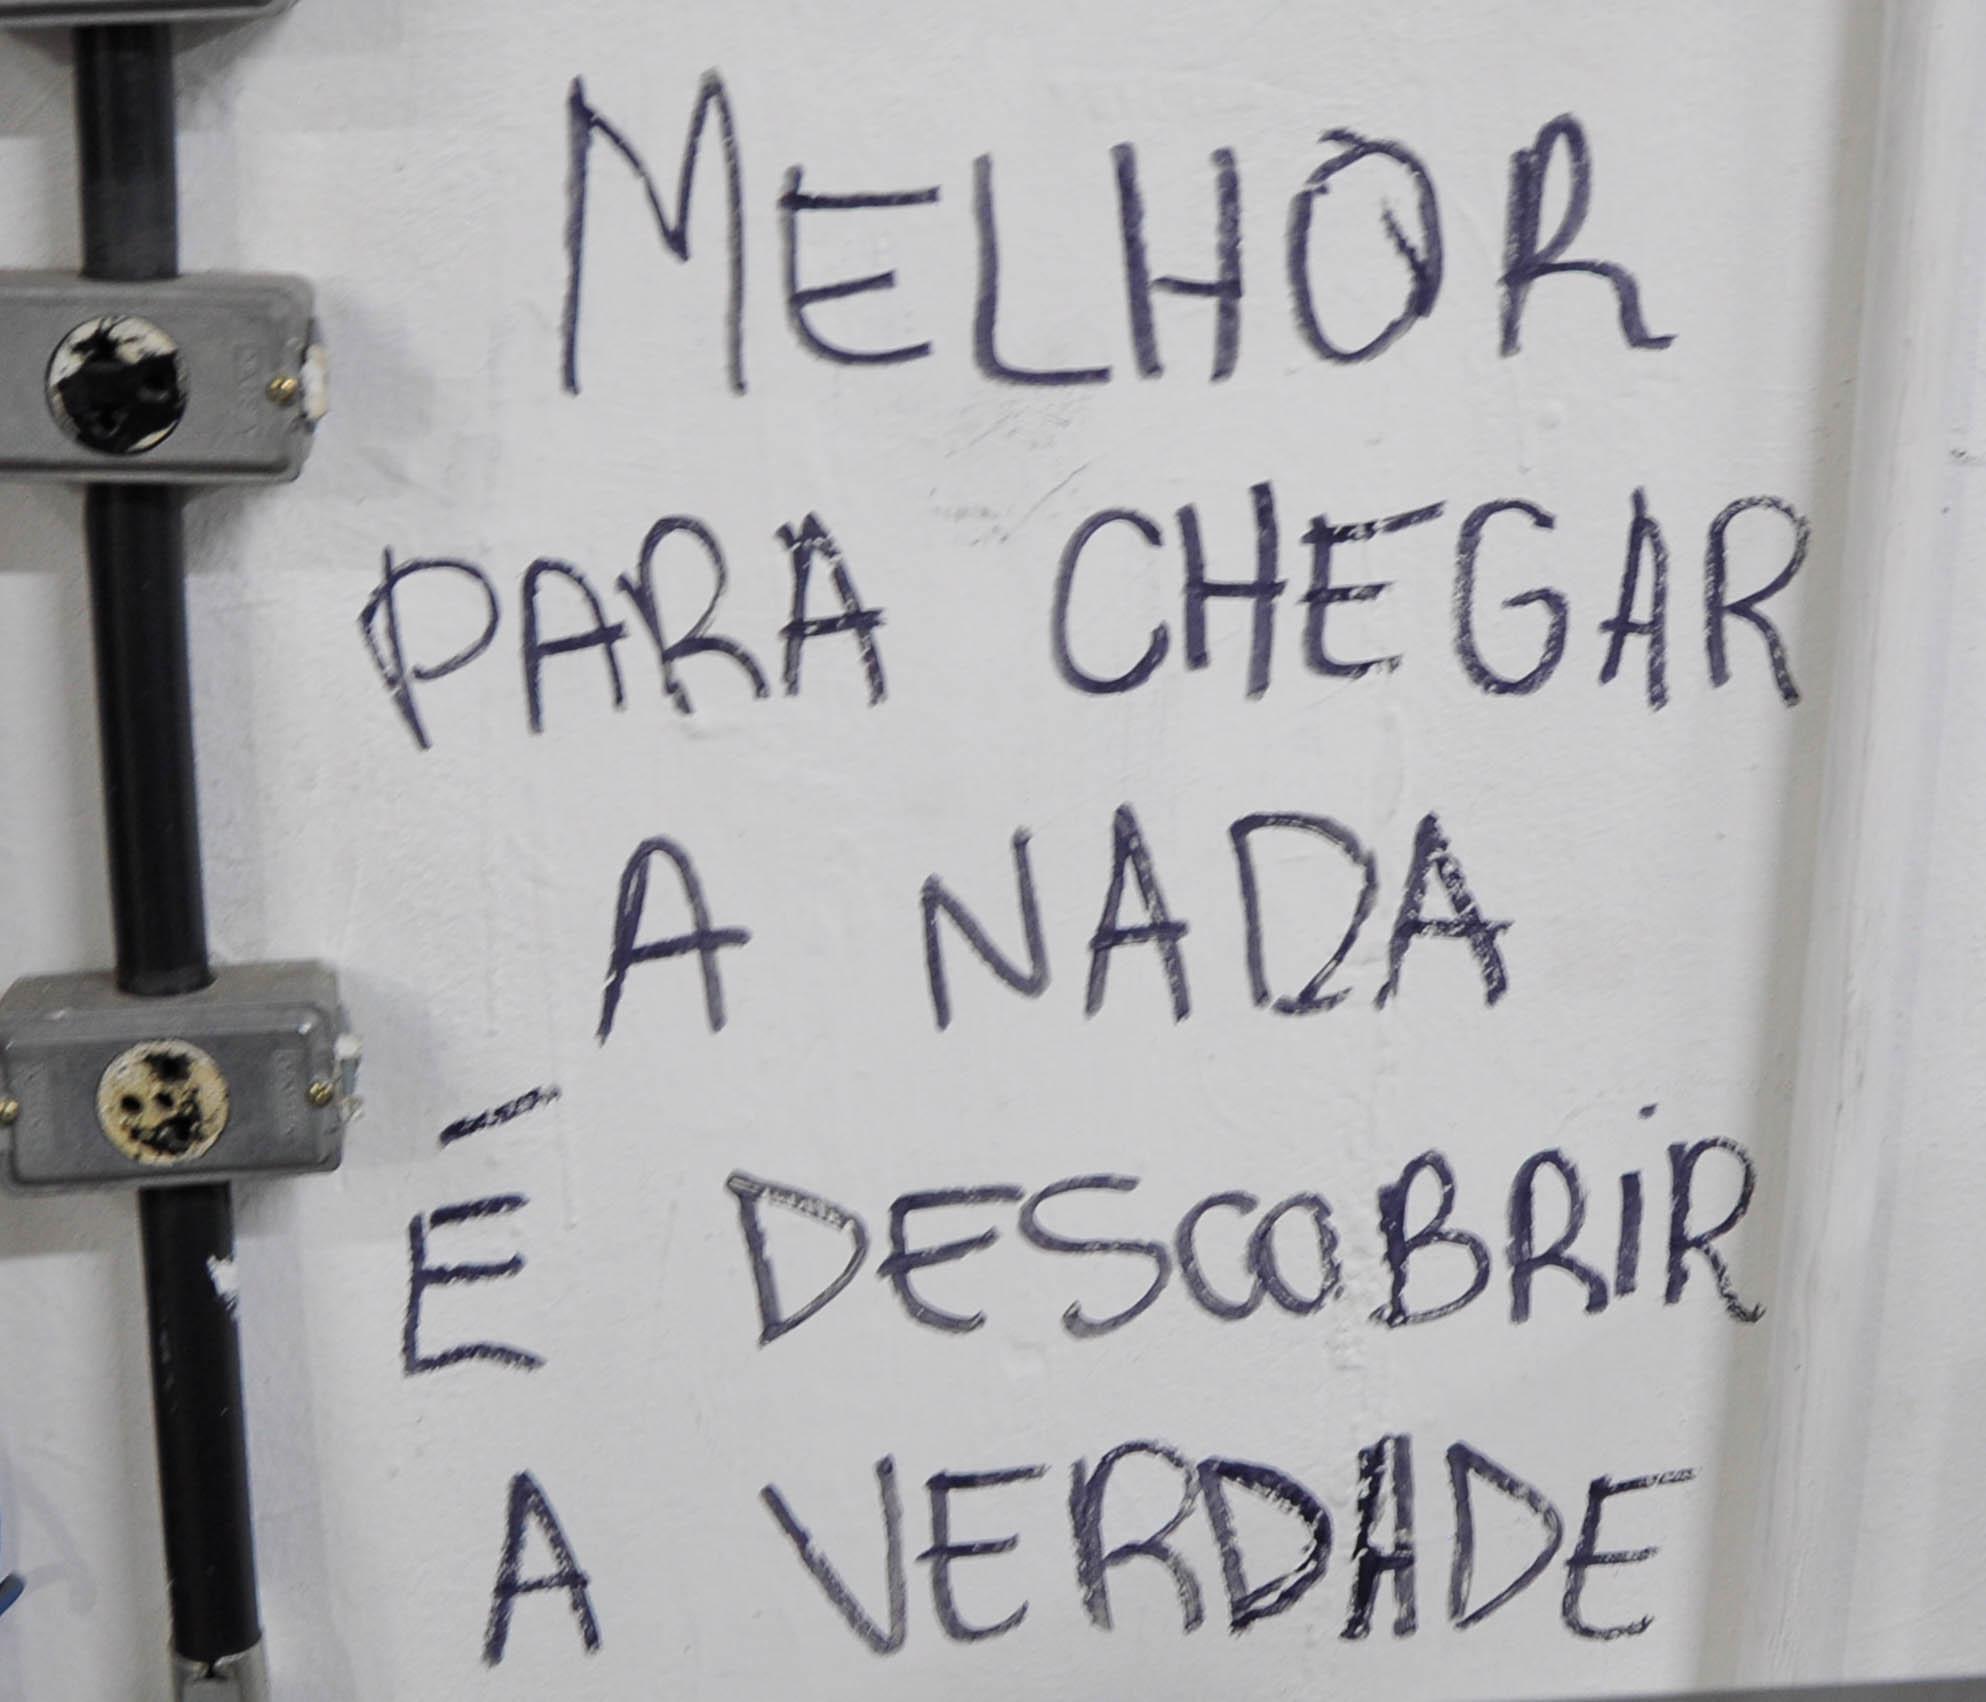 MELHOR
PARA CHEGAR
A NADA
É DESCOBRIR
A VERDADE